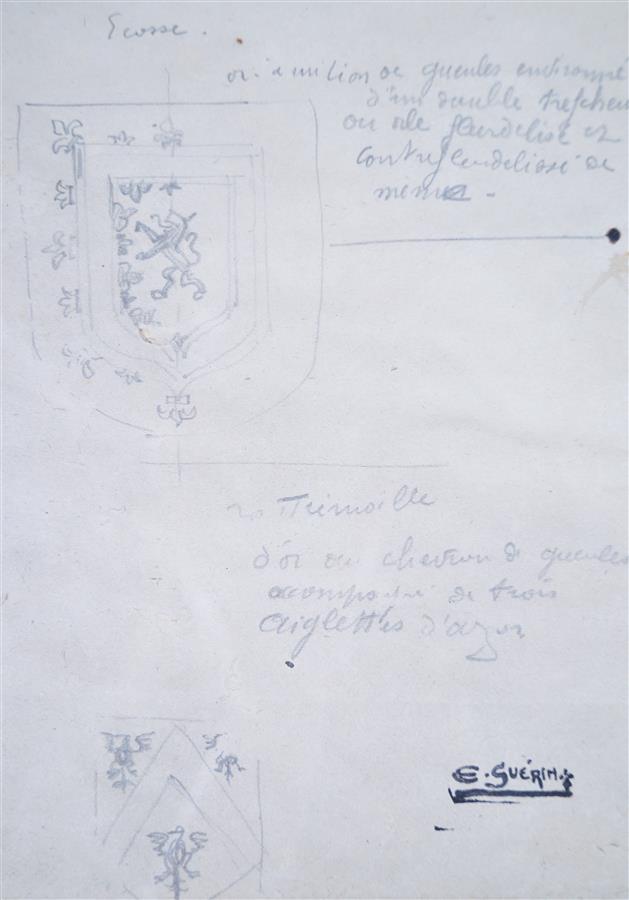 Ecosse.
or. a un lion de gueules environné
d'un double trescheur
ou orle fleurdelisé et
contrefleurdelissé de
même -
La Trémoille
d'or au chevron de gueules
accompagné de trois
aiglettes d'azur
E. GUÉRIN